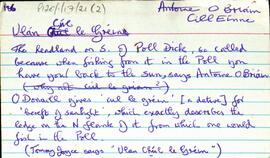 P120/1/7/21 (2)
Antoine O Briain
Cill Éinne
Ulán Cúl le Gréin
The headland on S. of Poll Dick, so called
because when fishing from it in the Poll
you have your back to the Sun, says Antoine O Briain
(Why not cúl le gréin?)
O Donaill gives 'cúl le gréin' [in a dative] for
'bereft of sunlight', which exactly describes the
ledge on the N of it from which one would
fish in the Poll
(Tommy Joyce says "Ulán Chúl le Gréin")